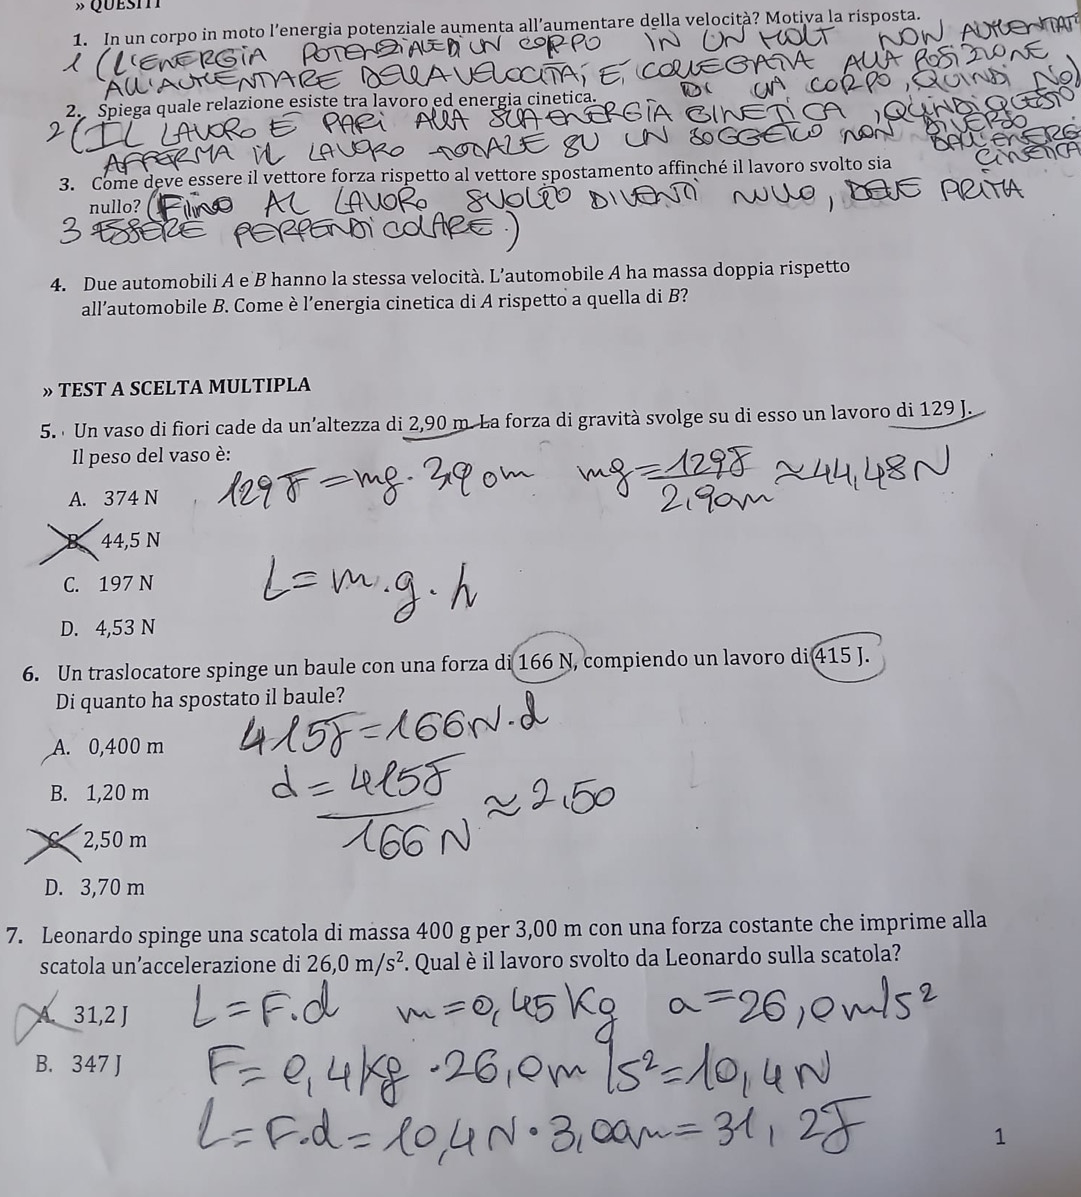 » QUESITI
1. In un corpo in moto l'energia potenziale aumenta all'aumentare della velocità? Motiva la risposta.
1 (L'ENERGIA POTENZIALE DI UN CORPO IN UN MOLT NON AUMENTATI
ALL'AUMENTARE DELLA VELOCITÀ, È COLLEGATA ALLA POSIZIONE
DI UN CORPO, QUINDI NO)
2. Spiega quale relazione esiste tra lavoro ed energia cinetica.
2 (IL LAVORO È PARI ALLA SUA ENERGIA CINETICA, QUINDI QUESTO
AFFERMA IL LAVORO TOTALE SU UN SOGGETO NON DIVERSO
DALL'ENERG
CINETICA
3. Come deve essere il vettore forza rispetto al vettore spostamento affinché il lavoro svolto sia
nullo? (Fiino AL LAVORO SVOLTO DIVENTI NULLO, DEVE PRITA
3 ESSERE PERPENDICOLARE.)
4. Due automobili A e B hanno la stessa velocità. L'automobile A ha massa doppia rispetto
all'automobile B. Come è l'energia cinetica di A rispetto a quella di B?
» TEST A SCELTA MULTIPLA
5. Un vaso di fiori cade da un'altezza di 2,90 m. La forza di gravità svolge su di esso un lavoro di 129 J.
Il peso del vaso è:
129 J = mg · 2,90m mg = 129J / 2,90m ≈ 44,48 N
A. 374 N
B. 44,5 N
C. 197 N
L = m · g · h
D. 4,53 N
6. Un traslocatore spinge un baule con una forza di 166 N, compiendo un lavoro di 415 J.
Di quanto ha spostato il baule?
415J = 166N · d
A. 0,400 m
d = 415J / 166 N ≈ 2,50
B. 1,20 m
C. 2,50 m
D. 3,70 m
7. Leonardo spinge una scatola di massa 400 g per 3,00 m con una forza costante che imprime alla
scatola un'accelerazione di 26,0 m/s². Qual è il lavoro svolto da Leonardo sulla scatola?
A. 31,2 J
L = F.d m = 0,45 Kg a = 26,0 m/s²
B. 347 J
F = 0,4 kg · 26,0m/s² = 10,4 N
L = F.d = 10,4 N · 3,00m = 31,2J
1